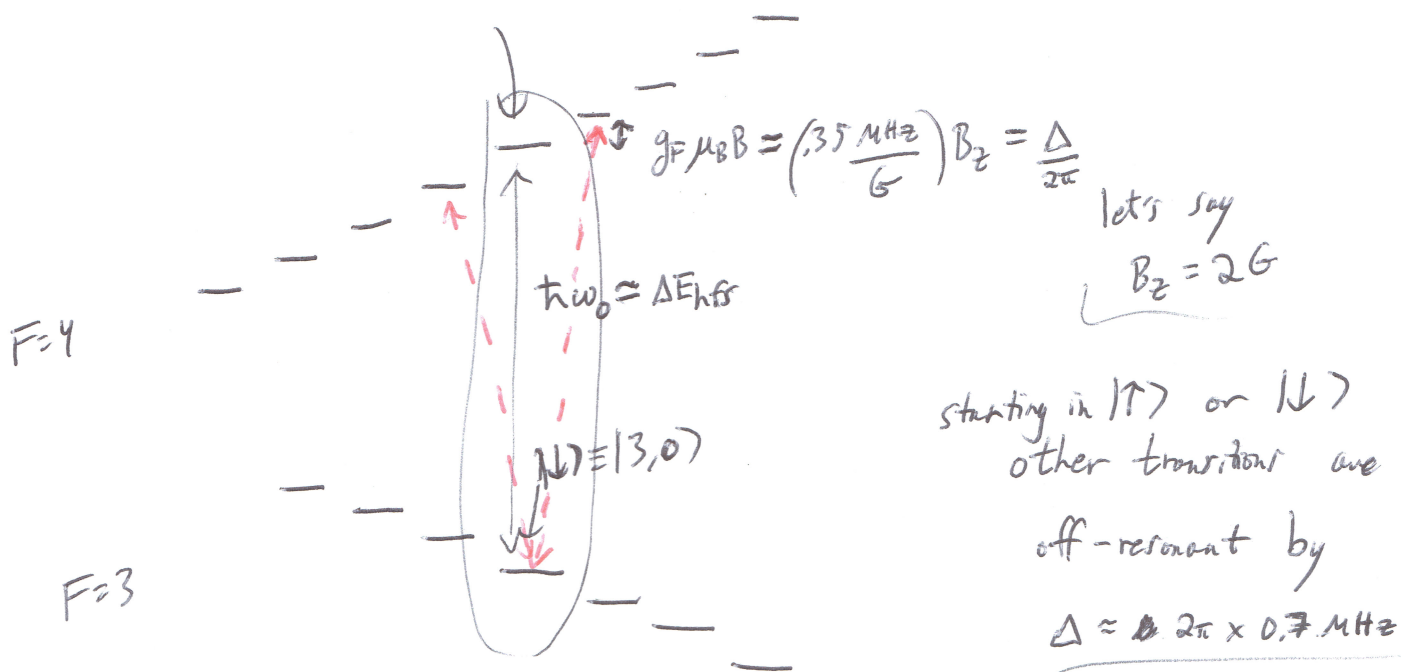 g_F μ_B B ≈ (.35 MHz/G) B_z = Δ/2π
let's say
B_z = 2G
ħω_0 ≃ ΔE_hfs
F=4
starting in |↑⟩ or |↓⟩
|↓⟩≡|3,0⟩
other transitions are
off-resonant by
F=3
Δ ≈ 2π × 0.7 MHz